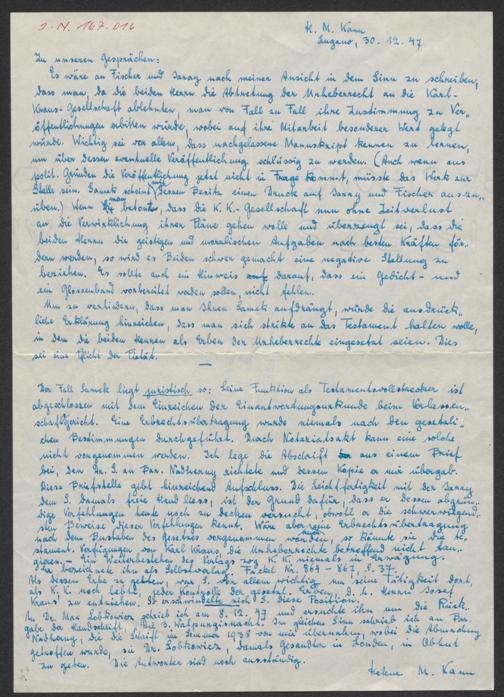 J. N. 167.016
H. M. Kann
Lugano, 30. 12. 47
Zu unseren Gesprächen:
Es wäre an Fischer und Saray nach meiner Ansicht in dem Sinn zu schreiben,
dass man, da die beiden Herren die Abtretung der Urheberrechte an die Karl-
Kraus Gesellschaft ablehnten, man von Fall zu Fall ihre Zustimmung zu Ver-
öffentlichungen erbitten würde, wobei auf ihre Mitarbeit besonderer Wert gelegt
würde. Wichtig sei vor allem, dass nachgelassene Manuskript kennen zu lernen,
um über dessen eventuelle Veröffentlichung schlüssig zu werden (Auch wenn aus
polit. Gründen die Veröffentlichung jetzt nicht in Frage kommt, müsste das Werk zur
Stelle sein. Samek scheint dessen Besitz einen Druck auf Saray und Fischer auszu-
üben.) Wenn man betont, dass die K. K.-Gesellschaft nun ohne Zeitverlust
an die Verwirklichung ihrer Pläne gehen wolle und überzeugt sei, dass die
beiden Herren die geistigen und moralischen Aufgaben nach besten Kräften för-
dern werden, so wird es Beiden schwer gemacht eine negative Stellung zu
beziehen. Es sollte auch ein Hinweis darauf, dass ein Gedicht- und
ein Glossenband vorbereitet werden sollen, nicht fehlen.
Um zu verhindern, dass man Ihnen Samek aufdrängt, würde die ausdrück-
liche Erklärung hinreichen, dass man sich strikte an das Testament halten wolle,
in dem die beiden Herren als Erben der Urheberrechte eingesetzt seien. Dies
sei eine Pflicht der Pietät.
Der Fall Samek liegt juristisch so: Seine Funktion als Testamentsvollstrecker ist
abgeschlossen mit dem Einreichen der Einantwortungsurkunde beim Verlassen-
schaftsgericht. Eine Erbrechtsübertragung wurde niemals nach den gesetzli-
chen Bestimmungen durchgeführt. Durch Notariatsakt kann eine solche
nicht vorgenommen werden. Ich lege die Abschrift aus einem Brief
bei, den Dr. S. an Bar. Nadherny richtete und dessen Kopie er mir übergab.
Diese Briefstelle gibt hinreichend Aufschluss. Die Leichtfertigkeit mit der Saray
dem S. damals freie Hand liess, ist der Grund dafür, dass er dessen
Verfehlungen heute noch zu decken versucht, obwohl er die schwerwiegend-
sten Beweise dieser Verfehlungen kennt. Wäre aber eine Erbrechtsübertragung
nach dem Buchstaben des Gesetzes vorgenommen worden, so könnte sie die
Verfügungen von Karl Kraus, die Urheberrechte betreffend nicht
Ein Weiterbestehen des Verlags zog K. K. niemals in Erwägung.
Fackel No. 864 - 867 S. 37.
Als dessen Erbe zu gelten, war S. vor allem wichtig um seine Tätigkeit dort,
als K. K. noch lebte, jeder Kontrolle der gesetzl. Erben, d. h. Herrn Josef
Kraus' zu entziehen. S. diese Position.
An Dr. Max Lobkowicz schrieb ich am 8. 12. 47 und ersuchte ihn um die Rück-
gabe der Handschrift „Die 3. Walpurgisnacht". Im gleichen Sinn schrieb ich an Bar.
Nadherny, die die Schrift im Sommer 1938 von mir übernahm, wobei die Abmachung
getroffen wurde, sie Dr. Lobkowicz, damals Gesandter in London, in Obhut
zu geben. Die Antworten sind noch ausständig.
Helene M. Kann